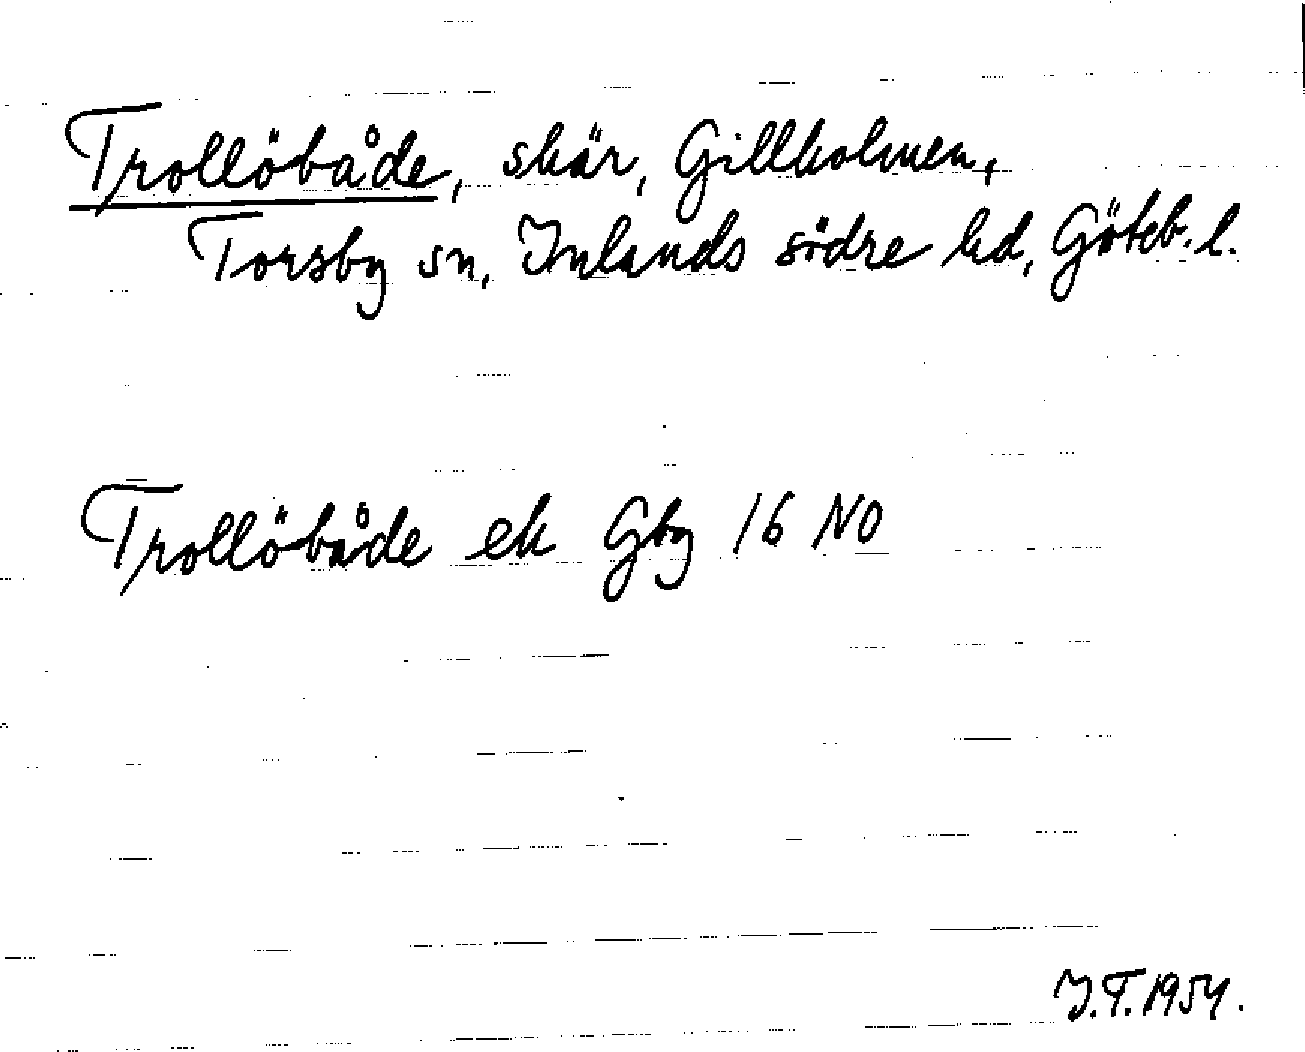 Trollöbåde, skär, Gillholmen,
Torsby sn, Inlands södre hd, Göteb. l.
Trollöbåde ek Gbg 16 NO
I.T. 1954.